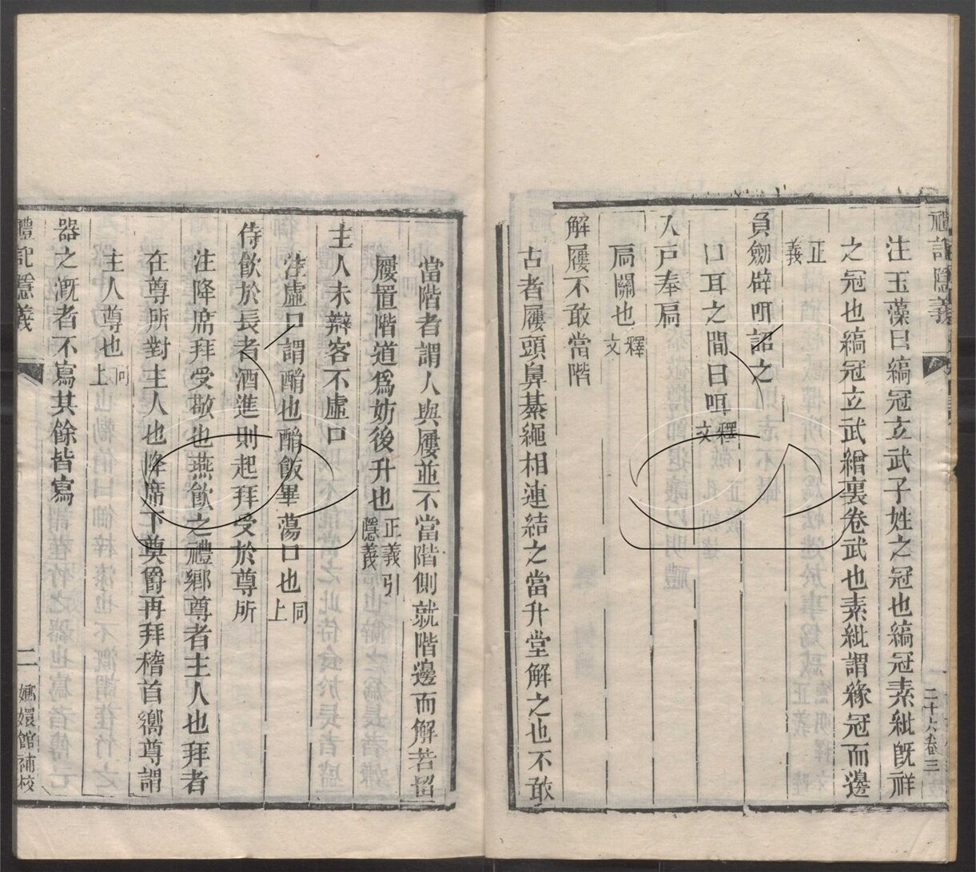 禮記隱義
二十六卷三
注玉藻曰縞冠玄武子姓之冠也縞冠素紕旣祥
之冠也縞冠玄武繒裏卷武也素紕謂緣冠而邊
正義
負劒辟咡詔之
口耳之間曰咡釋文
入戶奉扃
扃關也釋文
解屨不敢當階
古者屨頭鼻綦繩相連結之當升堂解之也不敢
當階者謂人與屨並不當階側就階邊而解若留
屨置階道爲妨後升也正義引隱義
主人未辯客不虛口
注虛口謂酳也酳飯畢蕩口也同上
侍飮於長者酒進則起拜受於尊所
注降席拜受敬也燕飮之禮鄉尊者主人也拜者
在尊所對主人也降席下奠爵再拜稽首嚮尊謂
主人尊也同上
器之漑者不寫其餘皆寫
禮記隱義
二
嫏嬛館補校